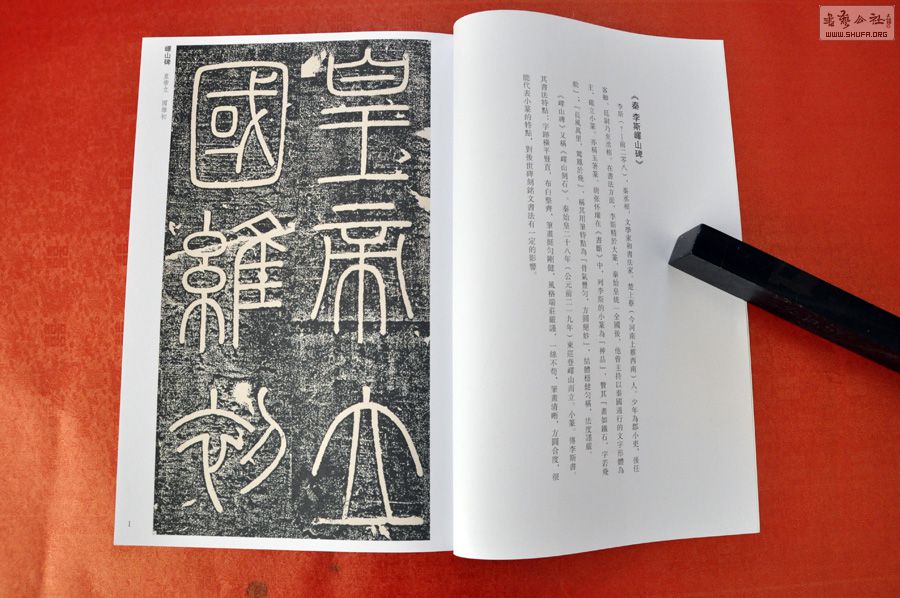 書藝公社
WWW.SHUFA.ORG
《秦 李斯嶧山碑》
李斯(？—前二零八)，秦丞相，文學家和書法家，楚上蔡(今河南上蔡西南)人，少年為郡小吏，後任
客卿、廷尉乃至丞相。在書法方面，李斯精於大篆，秦始皇統一全國後，他曾主持以秦國通行的文字形體為
主，確立小篆，亦稱玉箸篆。唐张怀瓘在《書斷》中，列李斯的小篆為「神品」，贊其「畫如鐵石，字若飛
動」；「長風萬里，鸞鳳於飛」，稱其用筆特點為「骨氣豐匀，方圓絕妙」，結體穩健匀稱，法度謹嚴。
《嶧山碑》又稱《嶧山刻石》。秦始皇二十八年(公元前二一九年)東巡登嶧山而立。小篆。傳李斯書。
其書法特點：字跡橫平豎直，布白整齊，筆畫圓匀剛健，風格端莊嚴謹，一絲不苟，筆畫清晰，方圓合度，很
能代表小篆的特點，對後世碑刻銘文書法有一定的影響。
皇帝立
國維初
嶧山碑
皇帝立 國維初
1